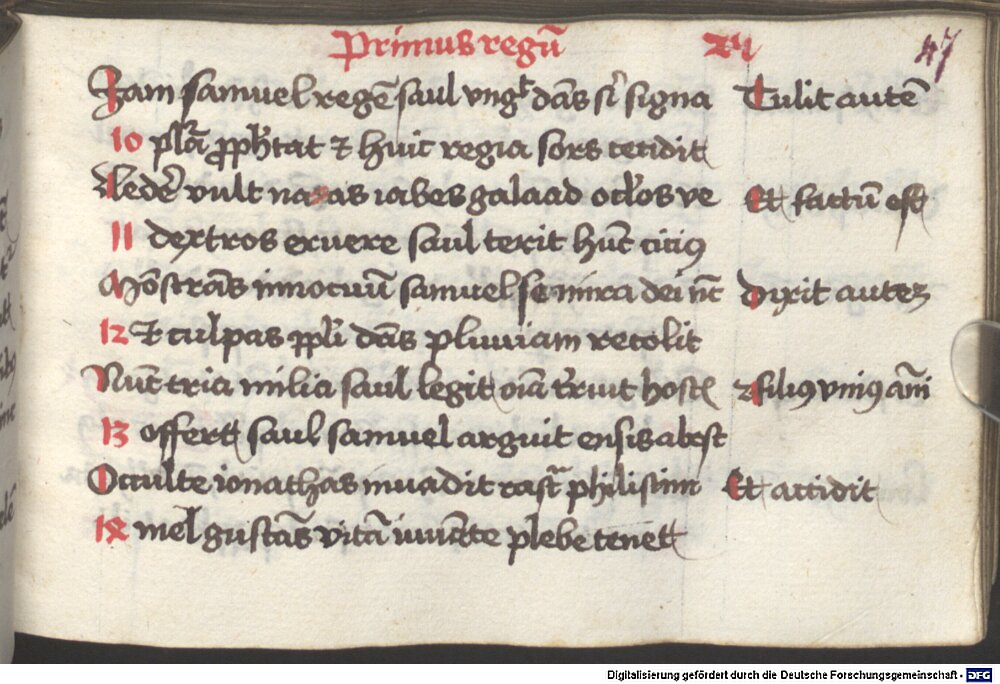 Primus regū
47
Iam samuel regē saul vngt dās si signa Tulit autē
10 plra prphetat et huic regia sors cecidit
Ledere vult naas iabes galaad oclos ve Et factū est
11 dextros eruere saul terit hūc citius
Mōstrās innocuū samuel se mira dei nc Dixit autez
12 Et culpas ppli dās pluuiam recolit
Nūc tria milia saul legit oīa hostes filius vnius āni
13 offert saul samuel arguit ensis abest
Occulte ionathas inuadit castra philistim Et accidit
14 mel gustās vitā iuuāte plebe tenet
Digitalisierung gefördert durch die Deutsche Forschungsgemeinschaft - DFG